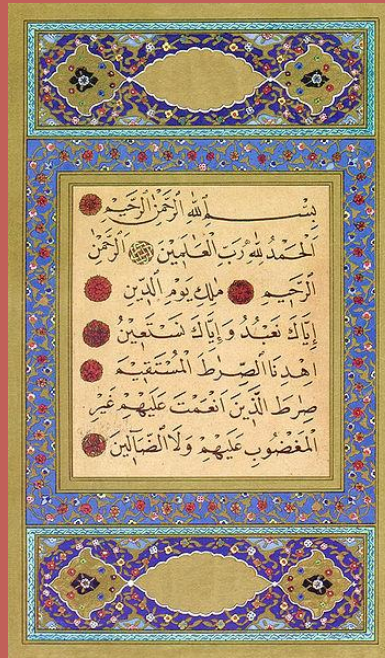 بِسْــــمِ اللّٰهِ الرَّحْمٰنِ الرَّحِيمِ
اَلْحَمْدُ لِلّٰهِ رَبِّ الْعَالَمِينَ الرَّحْمٰنِ
الرَّحِيمِ مٰلِكِ يَوْمِ الدِّينِ
اِيَّاكَ نَعْبُدُ وَاِيَّاكَ نَسْتَعِينُ
اِهْدِنَا الصِّرٰطَ الْمُسْتَقِيمَ
صِرٰطَ الَّذِينَ اَنْعَمْتَ عَلَيْهِمْ غَيْرِ
الْمَغْضُوبِ عَلَيْهِمْ وَلَا الضَّٓالِّينَ